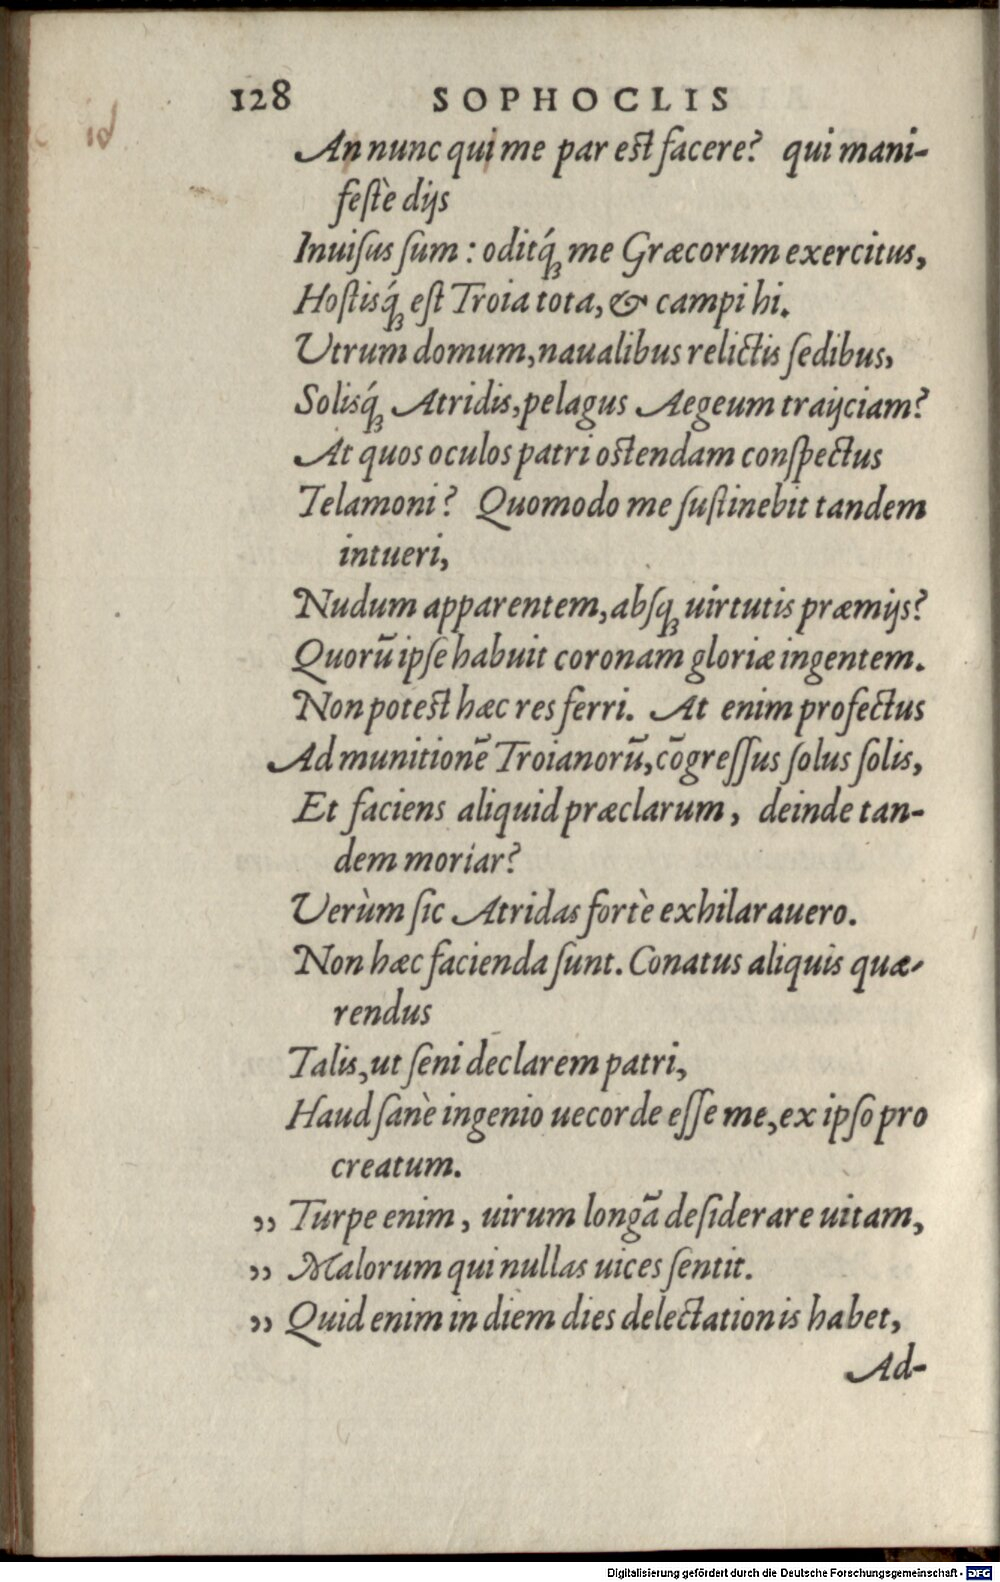 128 SOPHOCLIS
id
An nunc qui me par est facere? qui mani-
festè dijs
Inuisus sum: oditq́; me Græcorum exercitus,
Hostisq́; est Troia tota, & campi hi.
Utrum domum, naualibus relictis sedibus,
Solisq́; Atridis, pelagus Aegeum traijciam?
At quos oculos patri ostendam conspectus
Telamoni? Quomodo me sustinebit tandem
intueri,
Nudum apparentem, absq; uirtutis præmijs?
Quorū ipse habuit coronam gloriæ ingentem.
Non potest hæc res ferri. At enim profectus
Ad munitionē Troianorū, cōgressus solus solis,
Et faciens aliquid præclarum, deinde tan-
dem moriar?
Verùm sic Atridas fortè exhilarauero.
Non hæc facienda sunt. Conatus aliquis quæ-
rendus
Talis, ut seni declarem patri,
Haud sanè ingenio uecorde esse me, ex ipso pro
creatum.
„ Turpe enim, uirum longā desiderare uitam,
„ Malorum qui nullas uices sentit.
„ Quid enim in diem dies delectationis habet,
Ad-
Digitalisierung gefördert durch die Deutsche Forschungsgemeinschaft - DFG